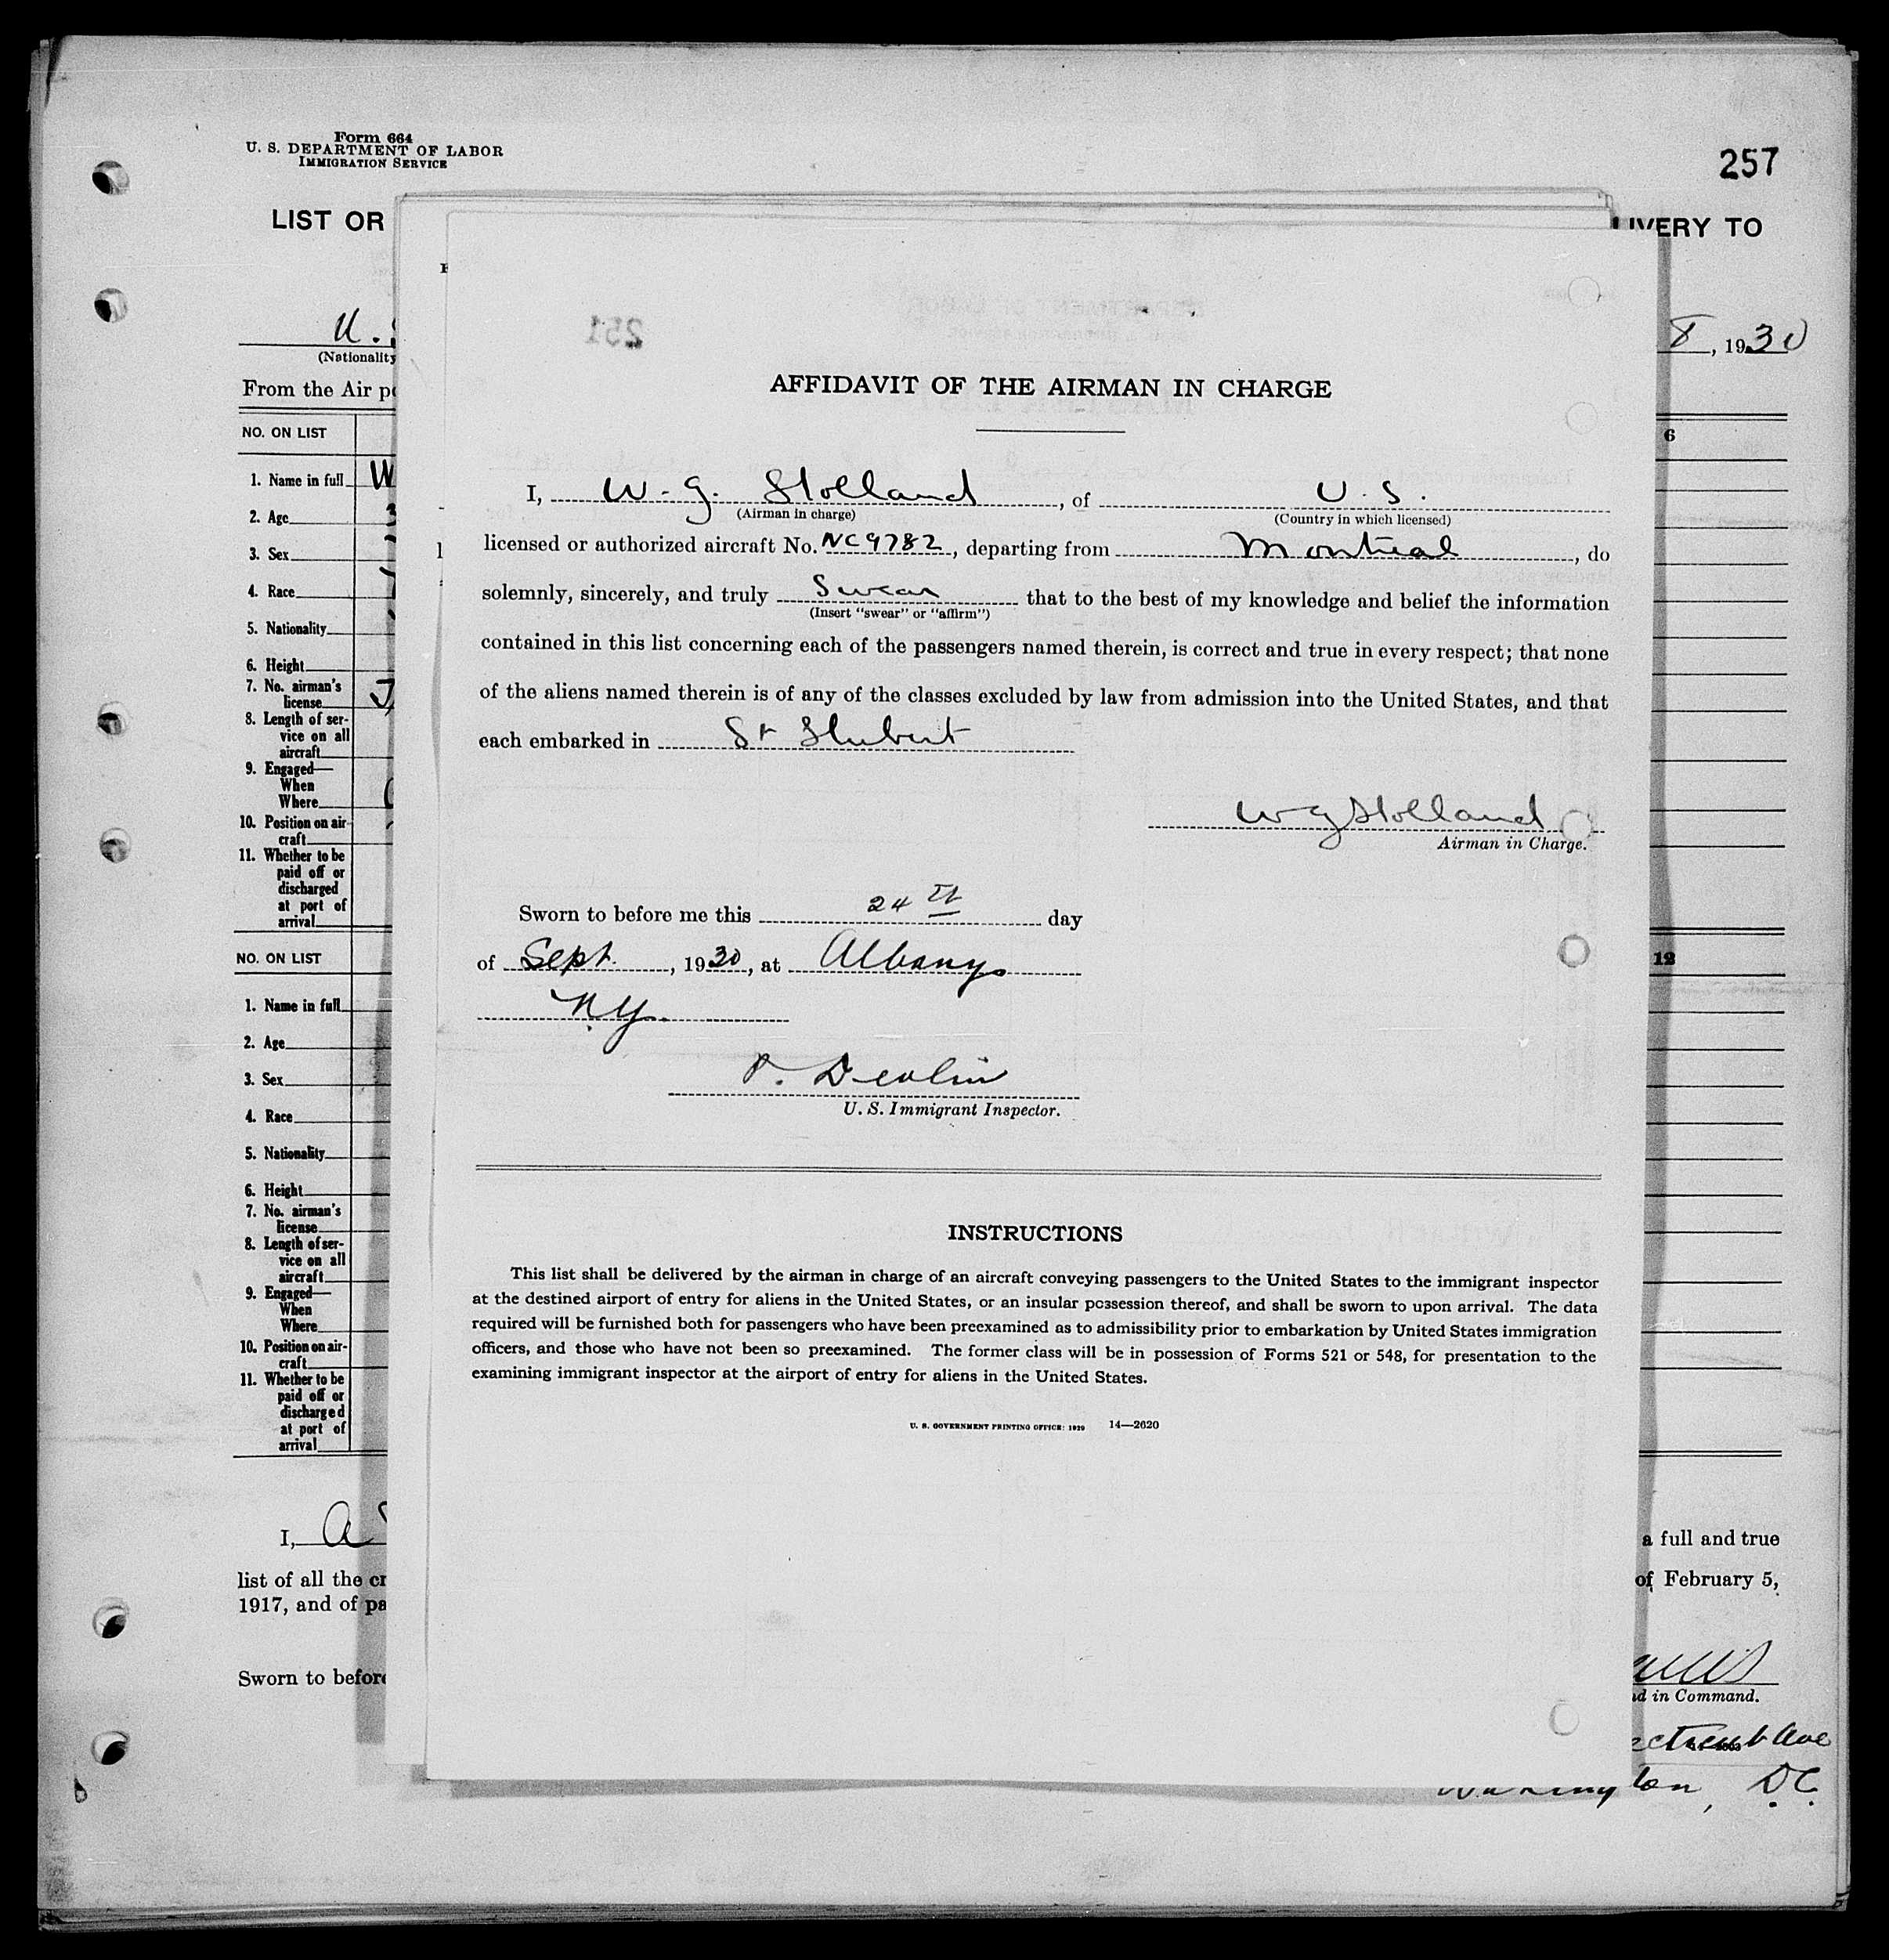 Form 664
U. S. DEPARTMENT OF LABOR
IMMIGRATION SERVICE
257
LIST OR
LIVERY TO
U. S
(Nationality
8, 1930
From the Air po
251
AFFIDAVIT OF THE AIRMAN IN CHARGE
I, W. G. Holland, of U. S.
(Airman in charge) (Country in which licensed)
licensed or authorized aircraft No. NC9782, departing from Montreal, do
solemnly, sincerely, and truly Swear that to the best of my knowledge and belief the information
(Insert "swear" or "affirm")
contained in this list concerning each of the passengers named therein, is correct and true in every respect; that none
of the aliens named therein is of any of the classes excluded by law from admission into the United States, and that
each embarked in St Hubert
W G Holland
Airman in Charge.
Sworn to before me this 24th day
of Sept., 1930, at Albany
N.Y.
P. Devlin
U. S. Immigrant Inspector.
INSTRUCTIONS
This list shall be delivered by the airman in charge of an aircraft conveying passengers to the United States to the immigrant inspector
at the destined airport of entry for aliens in the United States, or an insular possession thereof, and shall be sworn to upon arrival. The data
required will be furnished both for passengers who have been preexamined as to admissibility prior to embarkation by United States immigration
officers, and those who have not been so preexamined. The former class will be in possession of Forms 521 or 548, for presentation to the
examining immigrant inspector at the airport of entry for aliens in the United States.
U. S. GOVERNMENT PRINTING OFFICE: 1929 14—2620
NO. ON LIST
6
1. Name in full W
2. Age 3
3. Sex
4. Race
5. Nationality
6. Height
7. No. airman's
license
8. Length of ser-
vice on all
aircraft
9. Engaged—
When
Where
10. Position on air-
craft
11. Whether to be
paid off or
discharged
at port of
arrival
NO. ON LIST
12
1. Name in full
2. Age
3. Sex
4. Race
5. Nationality
6. Height
7. No. airman's
license
8. Length of ser-
vice on all
aircraft
9. Engaged—
When
Where
10. Position on air-
craft
11. Whether to be
paid off or
discharged
at port of
arrival
I, A
a full and true
list of all the cr
of February 5,
1917, and of pa
Sworn to before
d in Command.
Ave
D.C.